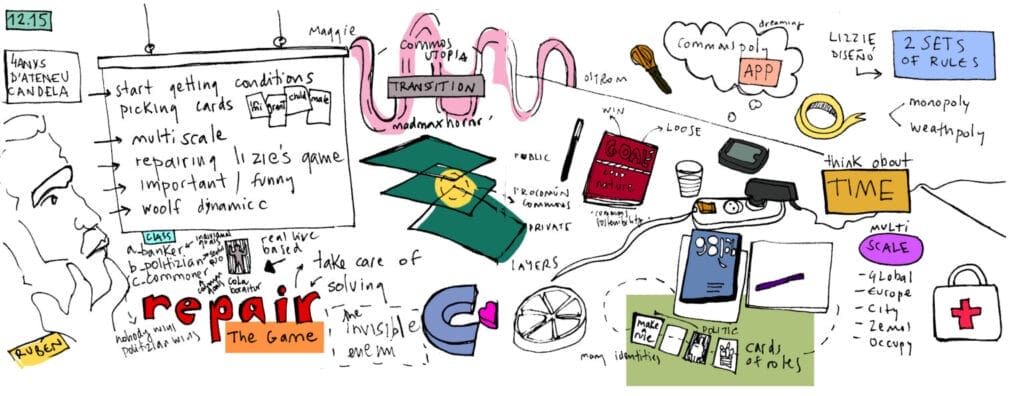 12.15
4ANYS
D'ATENEU
CANDELA
start getting conditions
picking cards
child
male
multiscale
repairing lizie's game
important / funny
woolf dynamicc
CLASS
a_banker
b_politizian
c_commoner
individual
goals
real live
based
repair
The Game
take care of
solving
nobody wins
politzian wins
RUBEN
the
invisible
enem
Maggie
commos
UTOPIA
TRANSITION
madmaxhorror
PUBLIC
PROCOMÚN
COMMONS
PRIVATE
LAYERS
WIN
LOOSE
GOAL
nature
dreaming
commonspoly
APP
LIZZIE
DISEÑÓ
2 SETS
OF RULES
monopoly
weathpoly
think about
TIME
MULTI
SCALE
- Global
- Europe
- City
- Occupy
many identities
make
a
rule
POLITIC
cards
of roles